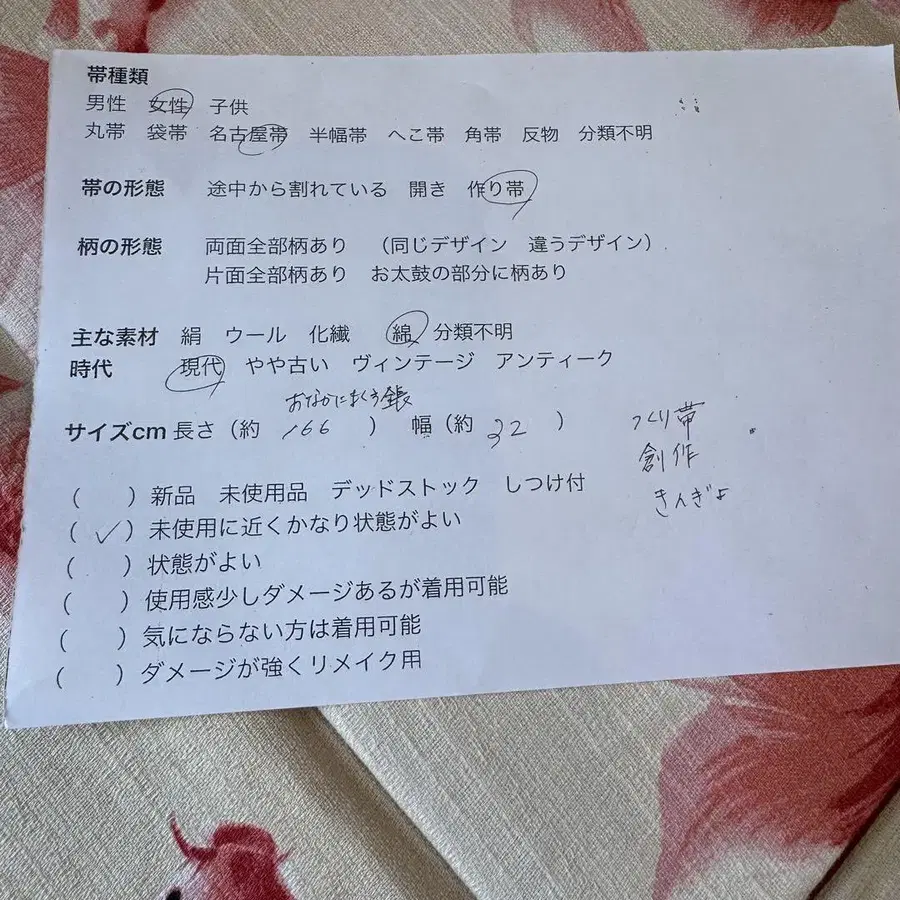 帯種類
男性 女性 子供
丸帯 袋帯 名古屋帯 半幅帯 へこ帯 角帯 反物 分類不明
帯の形態 途中から割れている 開き 作り帯
柄の形態 両面全部柄あり （同じデザイン 違うデザイン）
片面全部柄あり お太鼓の部分に柄あり
主な素材 絹 ウール 化繊 綿 分類不明
時代 現代 やや古い ヴィンテージ アンティーク
おなかにまく
サイズcm 長さ（約 166 ） 幅（約 32 ）
つくり帯
創作
きんぎょ
（ ）新品 未使用品 デッドストック しつけ付
（ ✓ ）未使用に近くかなり状態がよい
（ ）状態がよい
（ ）使用感少しダメージあるが着用可能
（ ）気にならない方は着用可能
（ ）ダメージが強くリメイク用